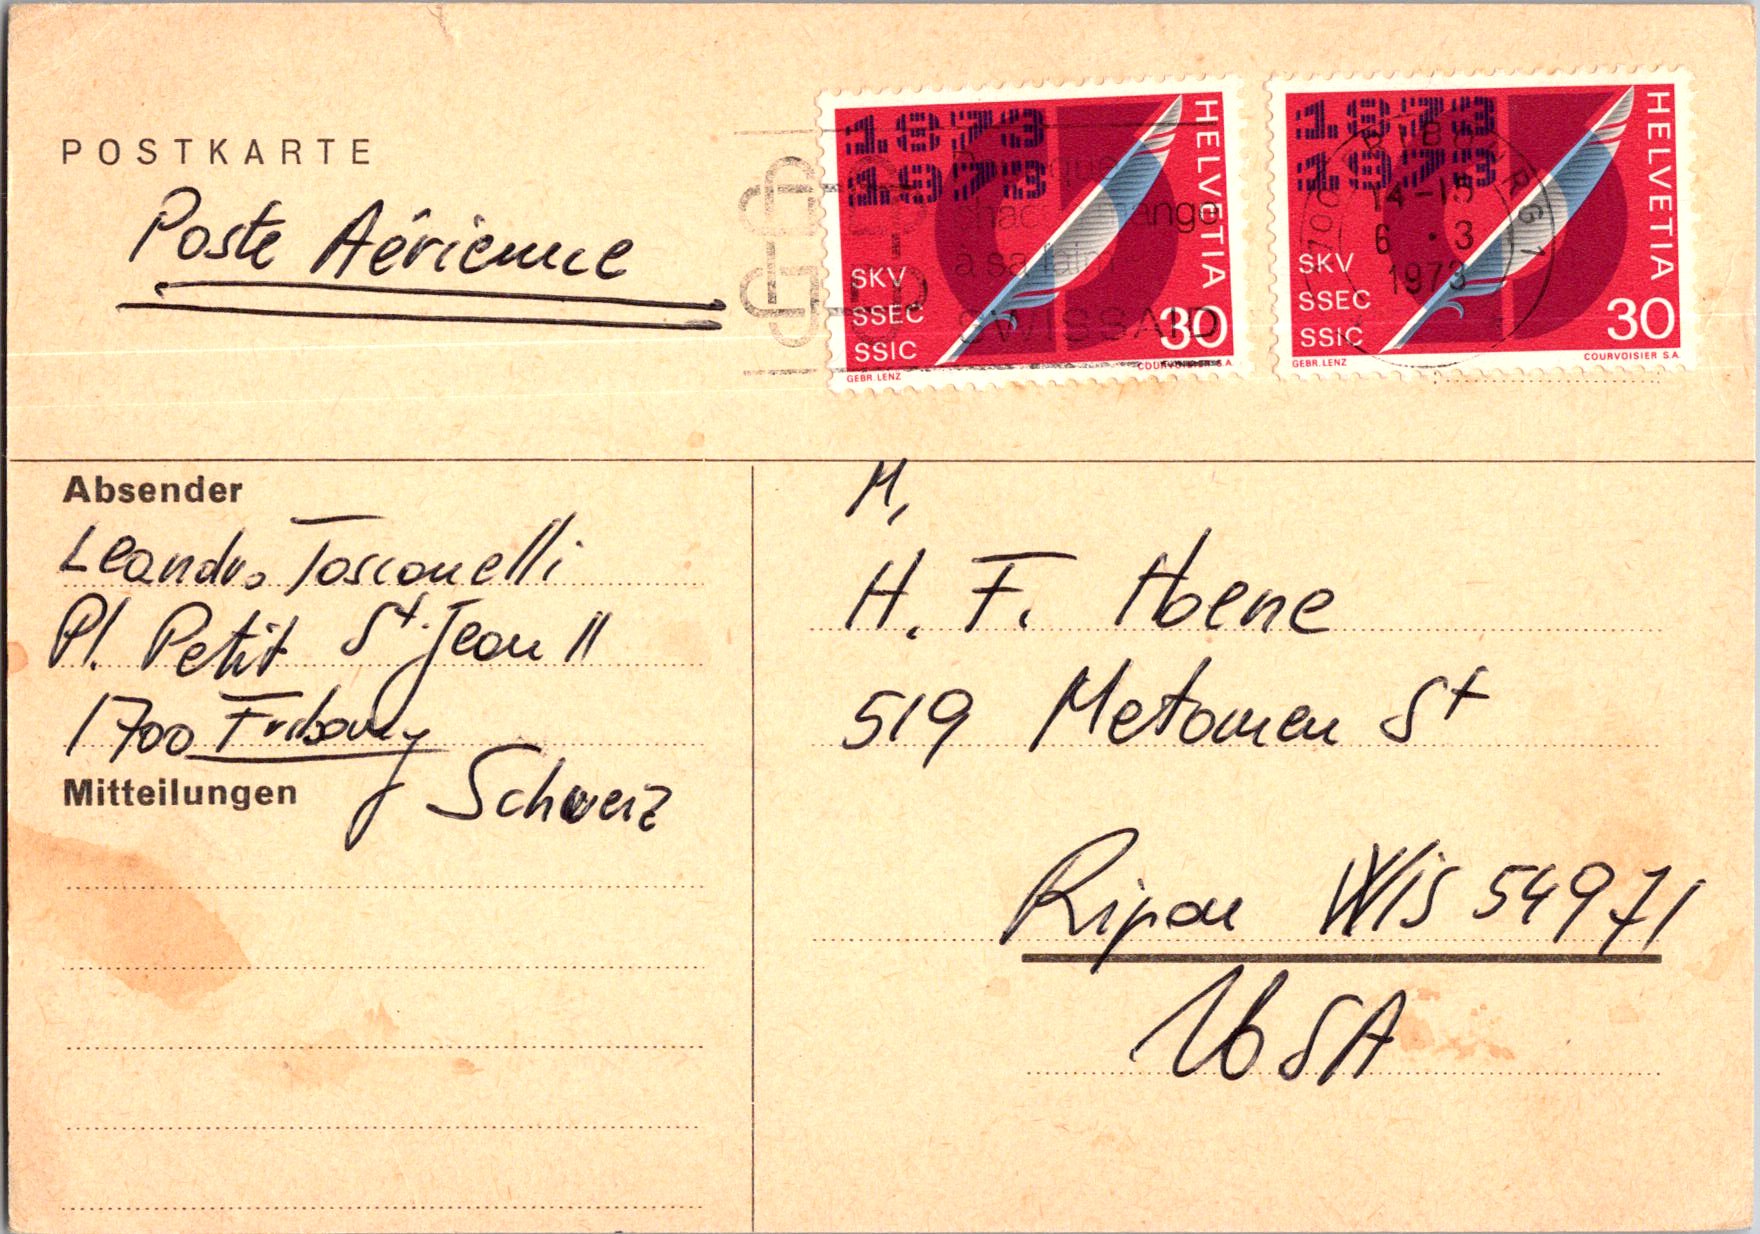 POSTKARTE
Poste Aérienne
1873
1973
SKV
SSEC
SSIC
HELVETIA
30
GEBR. LENZ
COURVOISIER S.A.
à sa faim
SWISSAID
1873
1973
SKV
SSEC
SSIC
HELVETIA
30
GEBR. LENZ
COURVOISIER S.A.
14-15
6.3
1973
Absender
Leandro Tosconelli
Pl. Petit St. Jean 11
1700 Fribourg
Schweiz
Mitteilungen
M,
H. F. Hoene
519 Metomen St
Ripon Wis 54971
USA